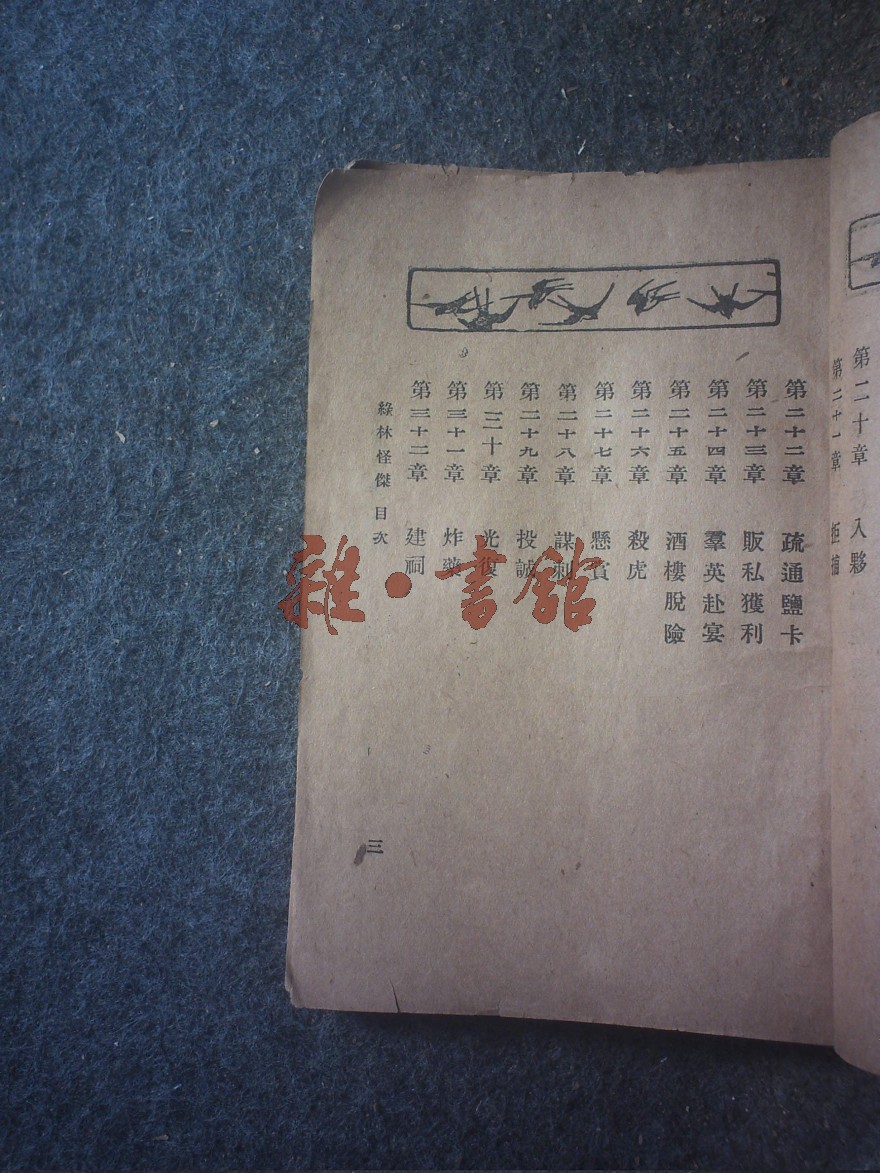 第二十章 入夥
第二十一章 拒捕
第二十二章 疏通鹽卡
第二十三章 販私獲利
第二十四章 羣英赴宴
第二十五章 酒樓脫險
第二十六章 殺虎
第二十七章 懸賞
第二十八章 謀刺
第二十九章 投誠
第三十章 光復
第三十一章 炸藥
第三十二章 建祠
綠林怪傑 目次
三
雜·書館